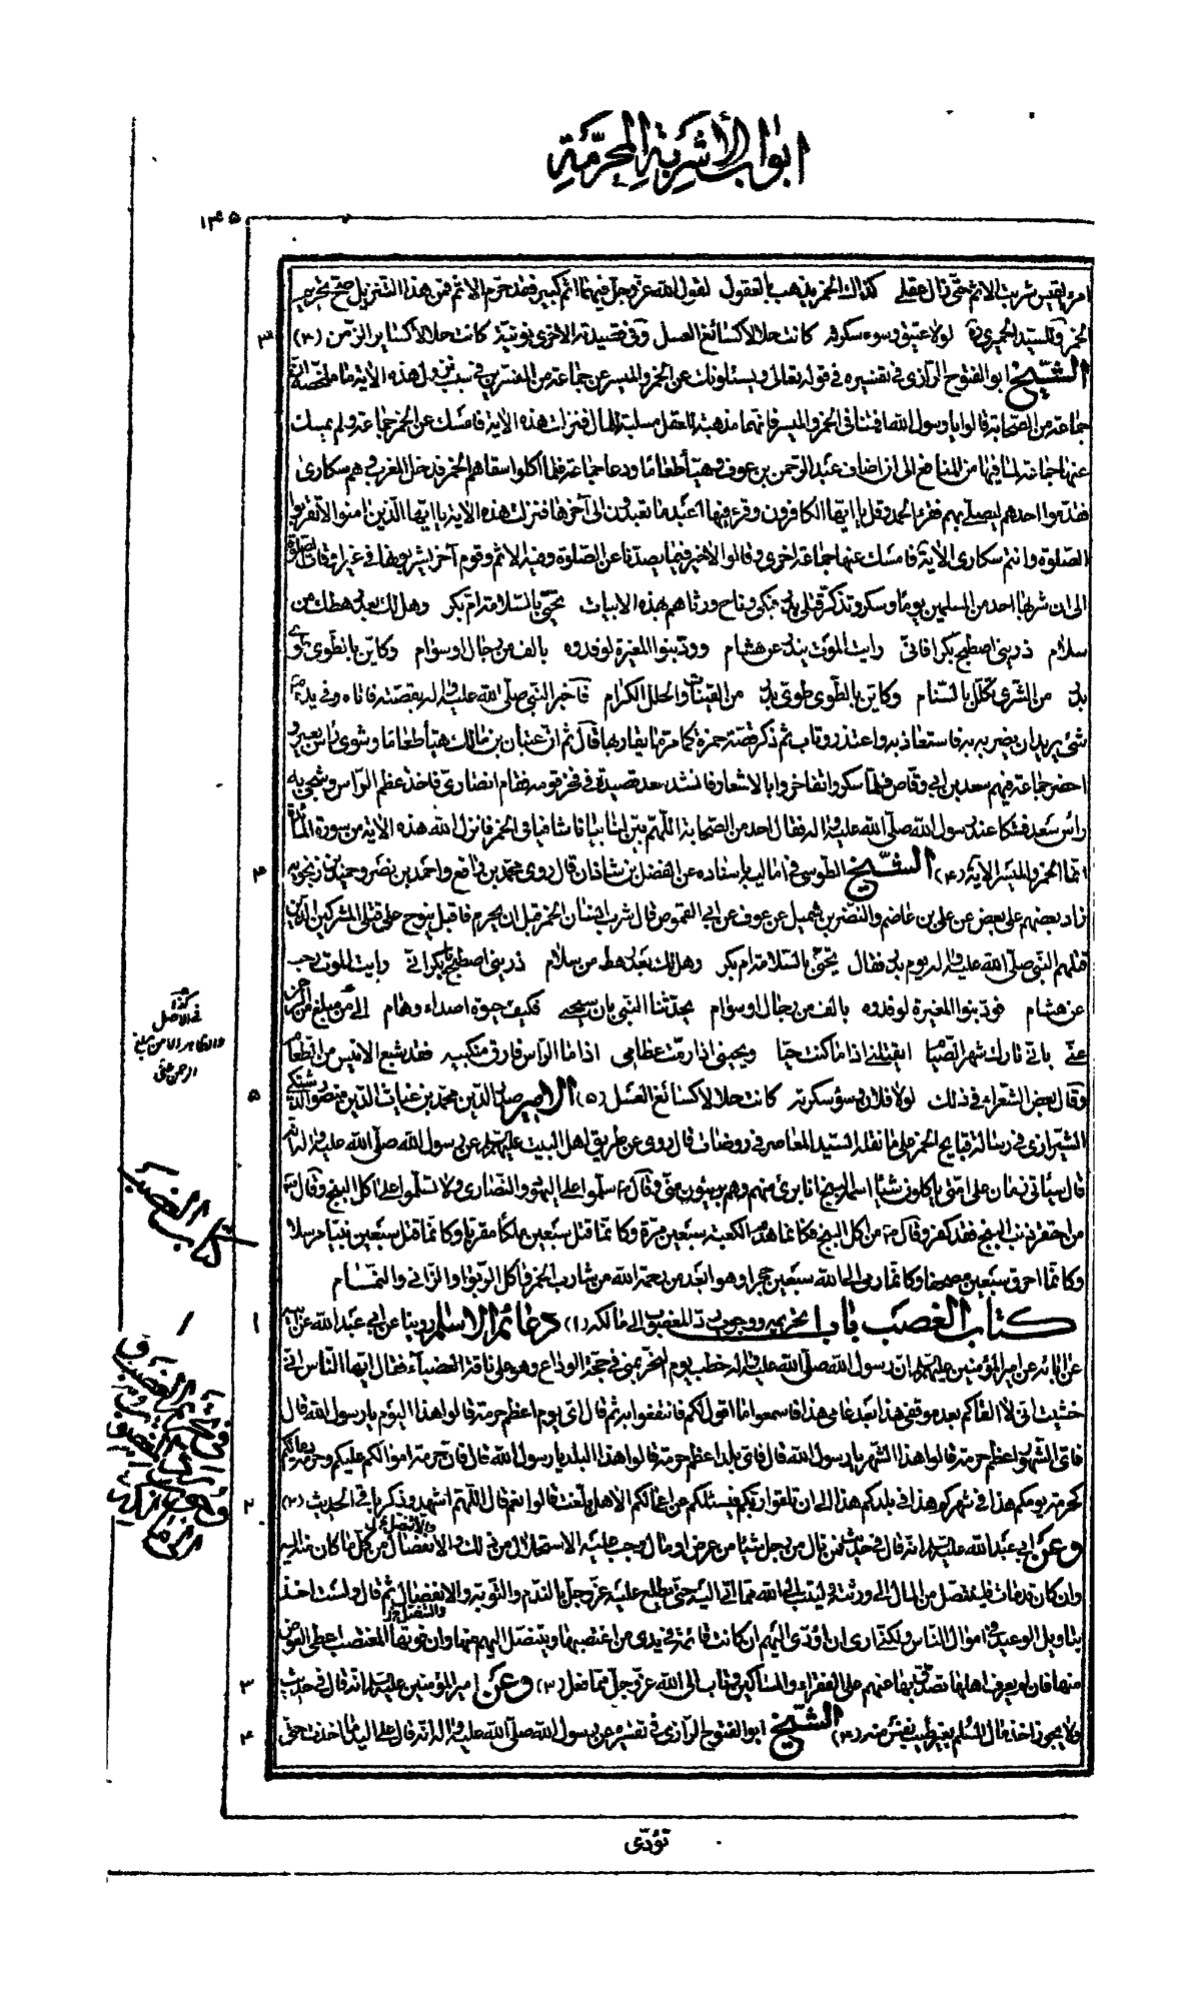 ابواب الأشربة المحرّمة
١٤٥
امرئ القيس شربت الاثم حتى زال عقلى كذاك الخمر يذهب بالعقول لقول الله عز وجل فيهما اثم كبير فقد حرم الاثم فى هذا التنزيل صح تحريم
الخمر وللسيد الحميرى ره لولا عتيق وسوء سكرته كانت حلالا كسائغ العسل وفى قصيدته الاخرى نونية كانت حلالا كساير الزمن (٣)
الشيخ ابو الفتوح الرازى فى تفسيره فى قوله تعالى ويسئلونك عن الخمر والميسر عن جماعة من المفسرين فى سبب نزول هذه الاية ما ملخصه ان
جماعة من الصحابة قالوا يا رسول الله افتنا فى الخمر والميسر فانهما مذهبة للعقل مسلبة للمال فنزلت هذه الاية فامسك عن الخمر جماعة ولم يمسك
عنها جماعة لما فيها من المنافع الى ان اضاف عبد الرحمن بن عوف وهيأ طعاما ودعا جماعة فلما اكلوا سقاهم الخمر فدخل المغرب وهم سكارى
فقدموا احدهم ليصلى بهم فقرء الحمد وقل يا ايها الكافرون وقرء فيها اعبد ما تعبدون الى آخرها فنزلت هذه الاية يا ايها الذين آمنوا لا تقربوا
الصلوة وانتم سكارى الاية فامسك عنها جماعة اخرى وقالوا لا خير فيما يصدنا عن الصلوة وفيه الاثم وقوم آخر يشربونها فى غير اوقات الصلوة
الى ان شربها احد من المسلمين يوما وسكر وتذكر قتلى بدر فبكى وناح ورثاهم بهذه الابيات تحيى بالسلامة ام بكر وهل لك بعد رهطك من
سلام ذرينى اصطبح بكرا فانى رايت الموت ينبث عن هشام وود بنوا المغيرة لو فدوه بالف من رجال او سوام وكاين بالطوى طوى
بدر من الشيزى تكلل بالسنام وكاين بالطوى طوى بدر من القينات والحلل الكرام فاخبر النبى صلى الله عليه وآله بقصته فاتاه وفى يده
شئ يريد ان يضربه به فاستعاذ به واعتذر وتاب ثم ذكر قصة حمزة كما مر ما يقاربها قال ثم ان عتبان بن مالك هيأ طعاما وشوى رأس بعير و
احضر جماعة فيهم سعد بن ابى وقاص فلما سكروا تفاخروا بالاشعار فانشد سعد قصيدة فى فخر قومه فقام انصارى فاخذ عظم الرأس وشج به
رأس سعد فشكا عند رسول الله صلى الله عليه وآله فقال احد من الصحابة اللهم بين لنا بيانا شافيا فى الخمر فانزل الله هذه الاية من سورة المائدة
انما الخمر والميسر الاية (٤) الشيخ الطوسى فى اماليه باسناده عن الفضل بن شاذان قال روى محمد بن رافع واحمد بن نصر وحميد بن زنجويه
زاد بعضهم على بعض عن على بن عاصم والنضر بن شميل عن عوف عن ابى القموص قال شرب انسان الخمر قبل ان يحرم فاقبل ينوح على قتلى المشركين الذين
قتلهم النبى صلى الله عليه وآله يوم بدر فقال تحيى بالسلامة ام بكر وهل لك بعد رهط من سلام ذرينى اصطبح يا بكر انى رايت الموت
عن هشام فود بنوا المغيرة لو فدوه بالف من رجال او سوام يحدثنا النبى بان سنحيى فكيف حيوة اصداء وهام الى من مبلغ الرحمن
عنى بانى تارك شهر الصيام ايقتلنى اذا ما كنت حيا ويحيينى اذا رمت عظامى اذا ما الرأس فارق منكبيه فقد شبع الانيس من الطعام
وقال بعض الشعراء فى ذلك لولا فلان وسوء سكرته كانت حلالا كسائغ العسل (٥) الامير صدر الدين محمد بن غياث الدين منصور الدشتكى
الشيرازى فى رسالة قبايح الخمر على ما نقله السيد المعاصر فى روضات قال روى عن طريق اهل البيت عليهم السلام عن رسول الله صلى الله عليه وآله انه
قال سيأتى زمان على امتى ياكلون شيئا اسمه البنج انا برئ منهم وهم بريئون منى وقال ص سلموا على اليهود والنصارى ولا تسلموا على آكل البنج وقال ص
من احتقر ذنب البنج فقد كفر وقال ص من اكل البنج فكانما هدم الكعبة سبعين مرة وكانما قتل سبعين ملكا مقربا وكانما قتل سبعين نبيا مرسلا
وكانما احرق سبعين مصحفا وكانما رمى الى الله سبعين حجرا وهو ابعد من رحمة الله من شارب الخمر وآكل الربوا والزانى والنمام
كتاب الغصب باب تحريمه ووجوب رد المغصوب الى مالكه (١) دعائم الاسلام روينا عن ابى عبد الله عن ابيه
عن ابائه عن امير المؤمنين عليهم السلام ان رسول الله صلى الله عليه وآله خطب يوم النحر بمنى فى حجة الوداع وهو على ناقته العضباء فقال ايها الناس انى
خشيت انى لا القاكم بعد موقفى هذا بعد عامى هذا فاسمعوا ما اقول لكم فانتفعوا به ثم قال اى يوم اعظم حرمة قالوا هذا اليوم يا رسول الله قال
فاى الشهور اعظم حرمة قالوا هذا الشهر يا رسول الله قال فاى بلد اعظم حرمة قالوا هذا البلد يا رسول الله قال فان حرمة اموالكم عليكم وحرمة دمائكم
كحرمة يومكم هذا فى شهركم هذا فى بلدكم هذا الى ان تلقوا ربكم فيسئلكم عن اعمالكم الا هل بلغت قالوا نعم قال اللهم اشهد وذكر باقى الحديث (٢)
وعن ابى عبد الله عليه السلام انه قال فى حديث فمن نال من رجل شيئا من عرض او مال وجب عليه الاستحلال من ذلك والانفصال من كل ما كان منه اليه
وان كان قد مات فليتنصل من المال الى ورثته وليتب الى الله مما اتى اليه حتى يطلع عليه عز وجل بالندم والتوبة والانفصال ثم قال ولست اخذ
بتاويل الوعيد فى اموال الناس ولكنى ارى ان تؤدى اليهم ان كانت قائمة فى يدى من اغتصبها ويتنصل اليهم منها وان فوتها المغتصب اعطى العوض
منها فان لم يعرف اهلها تصدق بها عنهم على الفقراء والمساكين وتاب الى الله عز وجل مما فعل (٣) وعن امير المؤمنين عليه السلام انه قال فى حديث
ولا يجوز اخذ مال المسلم بغير طيب نفس منه (٤) الشيخ ابو الفتوح الرازى فى تفسيره عن رسول الله صلى الله عليه وآله انه قال على اليد ما اخذت حتى
٣
٤
كذا فى الاصل
٥
كتاب الغصب
١
٢
٣
٤
تؤدى